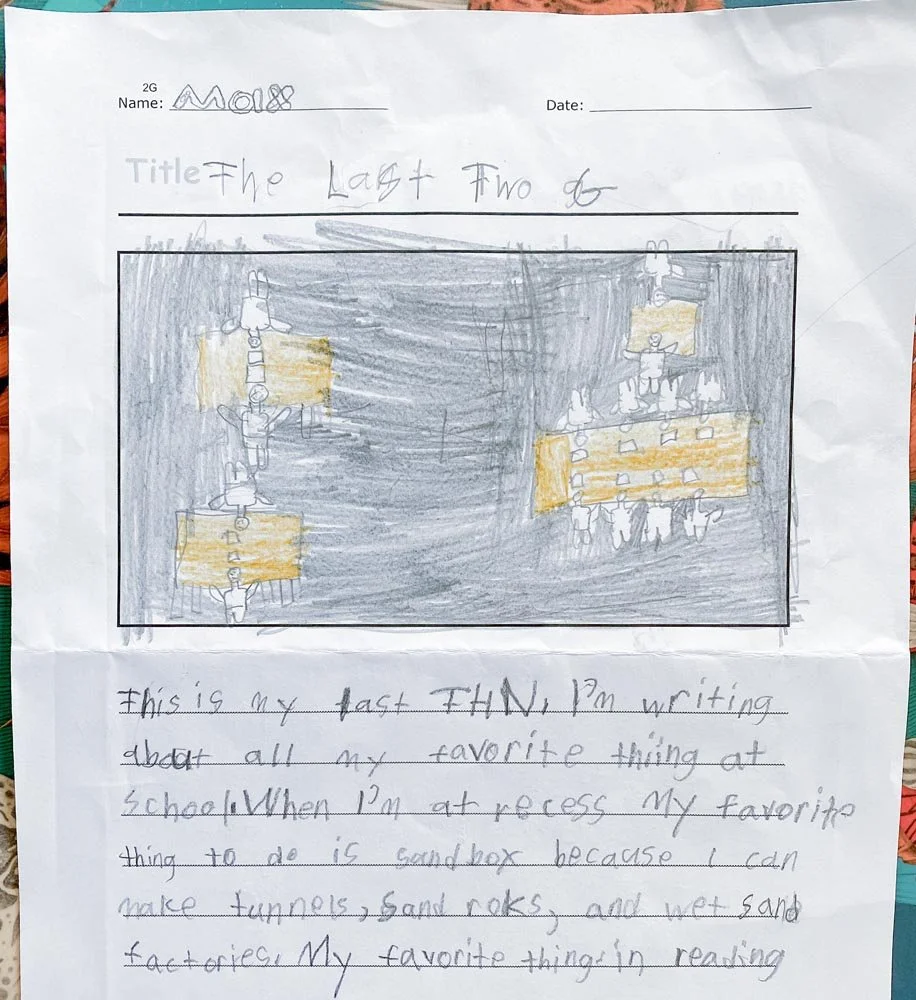 2G
Name: Max
Date:
Title The Last Two G
This is my last THN, I'm writing
about all my favorite thiing at
school. When I'm at recess My favorite
thing to do is sandbox because i can
make tunnels, sand roks, and wet sand
factories. My favorite thing in reading